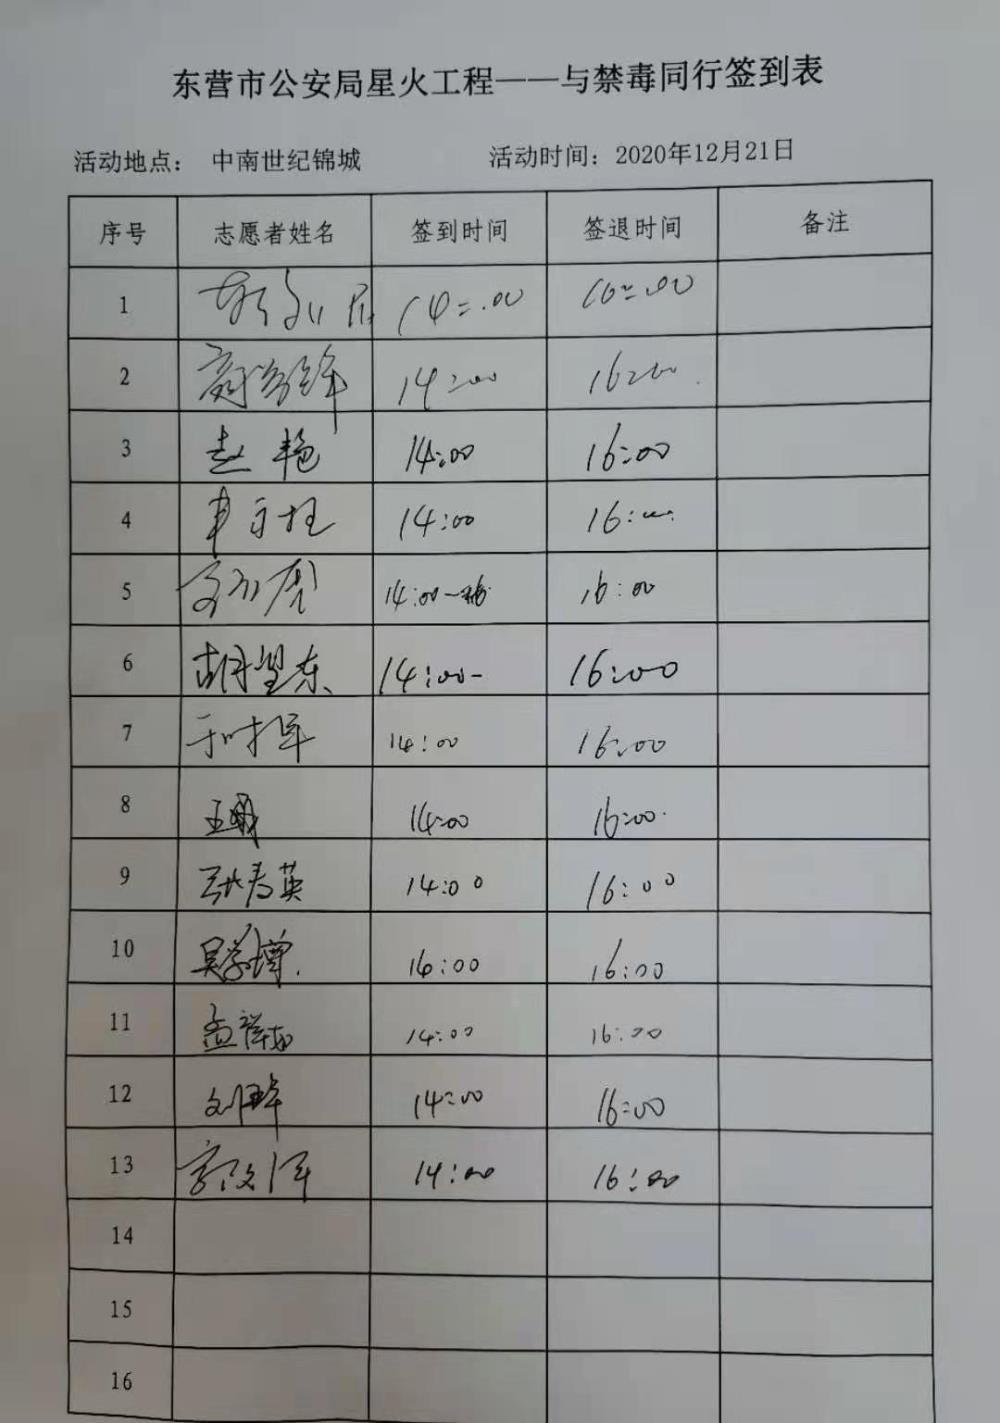 东营市公安局星火工程——与禁毒同行签到表
活动地点： 中南世纪锦城 活动时间：2020年12月21日
序号 志愿者姓名 签到时间 签退时间 备注
1 14:00 16:00
2 14:00 16:00
3 赵艳 14:00 16:00
4 14:00 16:00
5 14:00 16:00
6 胡望东 14:00- 16:00
7 14:00 16:00
8 14:00 16:00
9 张春英 14:00 16:00
10 吴学增 16:00
11 14:00 16:00
12 14:00 16:00
13 14:00 16:00
14
15
16